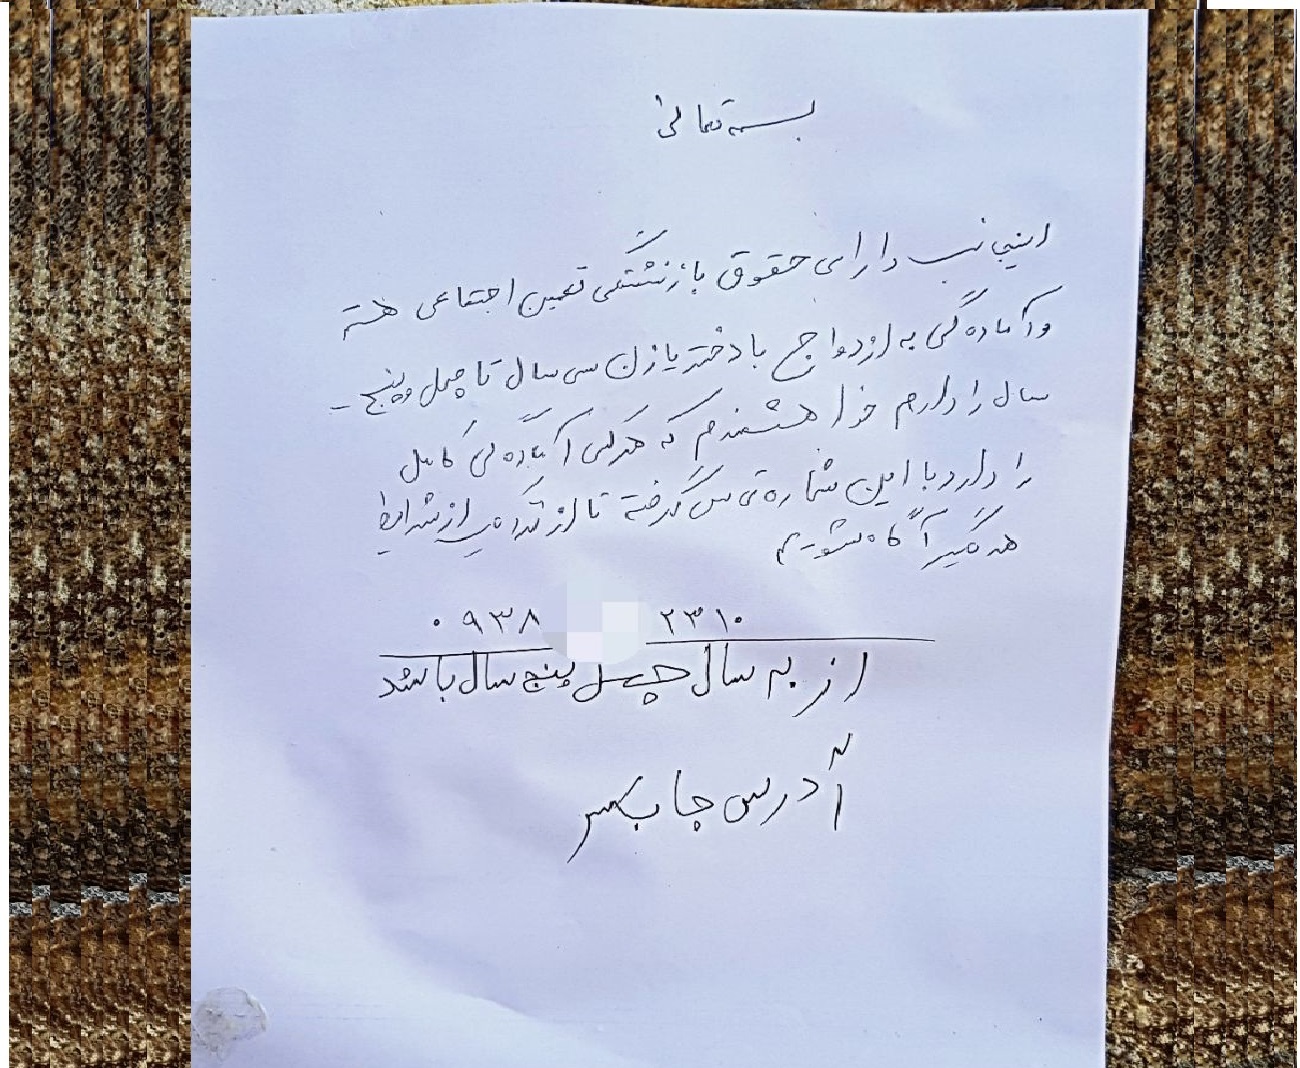 بسمه تعالی
اینجانب دارای حقوق بازنشستگی تعمین اجتماعی هستم
و آماده گی به ازدواج با دختر یا زن سی سال تا چهل و پنج
سال را دارم خواهشمندم که هرکس آماده گی کامل
را دارد با این شماره تماس گرفته تا از نزدیک از شرایط
همدیگر آگاه شویم
۰۹۳۸ ۲۳۱۰
از به سال چهل پنج سال باشد
آدرس چابکسر